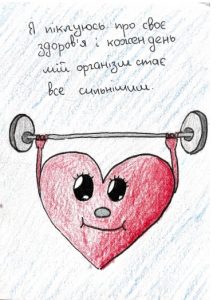 Я піклуюсь про своє
здоров'я і кожен день
мій організм стає
все сильнішим.